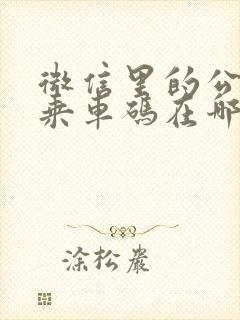 微信里的公
乘车码在哪
涂松岩